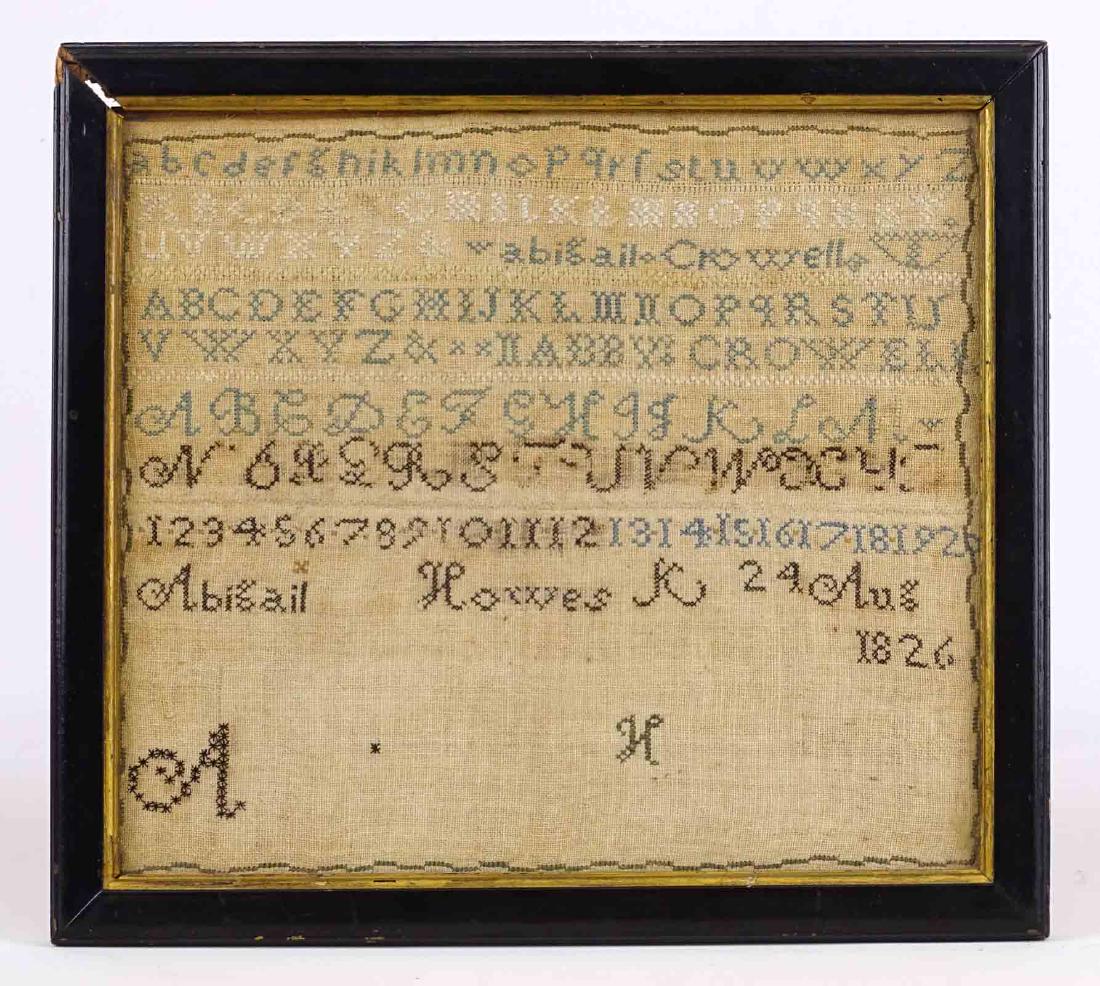 a b c d e f g h i k l m n o p q r ſ s t u v w x y z
U V W X Y Z & abigail Crowell
A B C D E F G H I J K L M N O P q R S T U
V W X Y Z & NABBY CROWELL
A B C D E F G H I J K L M
N O P Q R S T U V W X Y
1 2 3 4 5 6 7 8 9 10 11 12 13 14 15 16 17 18 19 20
Abigail Howes K 24 Aug
1826
A H